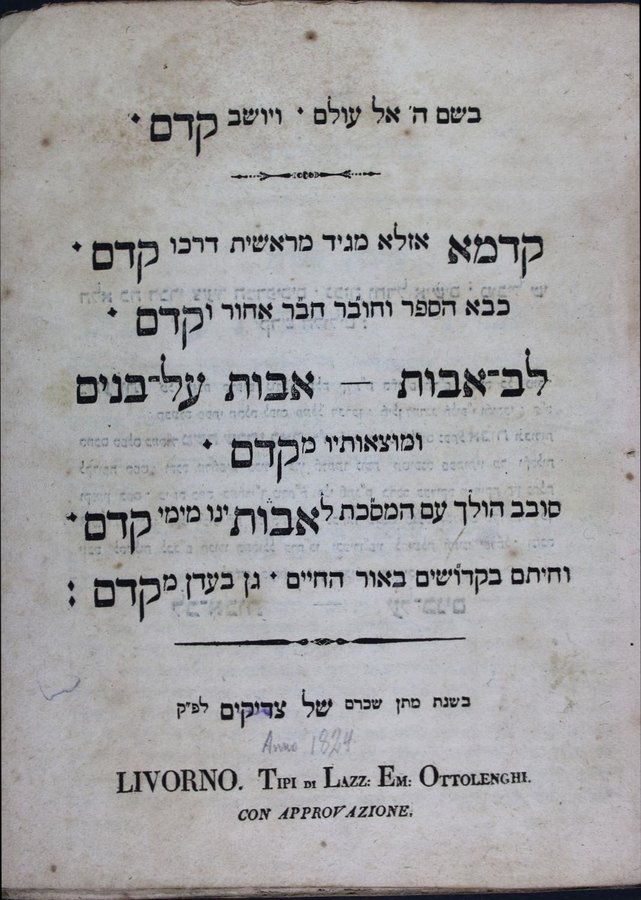 בשם ה׳ אל עולם • ויושב קדם •
קדמא אזלא מגיד מראשית דרכו קדם •
כבא הספר וחובר חבר אחור וקדם •
לב־אבות — אבות על־בנים
ומוצאותיו מקדם •
סובב הולך עם המסכת לאבותינו מימי קדם •
וחיתם בקדושים באור החיים • גן בעדן מקדם :
בשנת מתן שכרם של צדיקים לפ״ק
Anno 1824
LIVORNO. TIPI DI LAZZ: EM: OTTOLENGHI.
CON APPROVAZIONE.